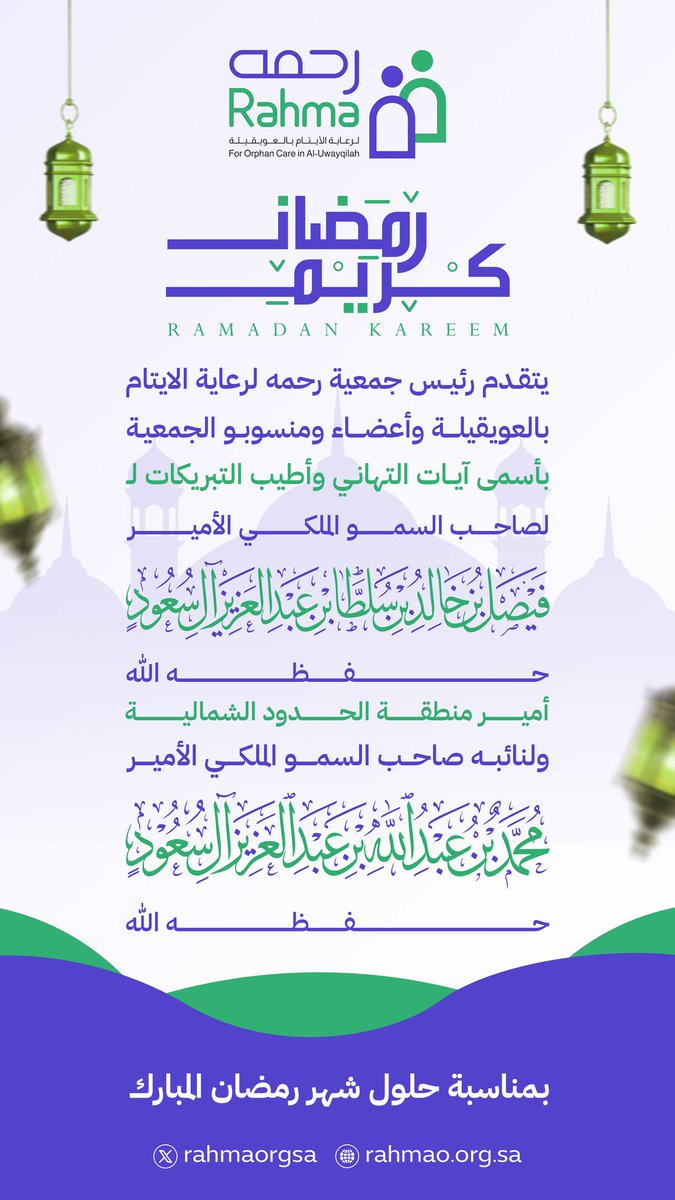 رحمه
Rahma
لرعاية الأيتام بالعويقيلة
For Orphan Care in Al-Uwayqilah
رمضان
كريم
RAMADAN KAREEM
يتقدم رئيس جمعية رحمه لرعاية الايتام
بالعويقيلة وأعضاء ومنسوبو الجمعية
بأسمى آيات التهاني وأطيب التبريكات لـ
لصاحب السمو الملكي الأمير
فيصل بن خالد بن سلطان بن عبد العزيز آل سعود
حفظه الله
أمير منطقة الحدود الشمالية
ولنائبه صاحب السمو الملكي الأمير
محمد بن عبد الله بن عبد العزيز آل سعود
حفظه الله
بمناسبة حلول شهر رمضان المبارك
rahmaorgsa rahmao.org.sa